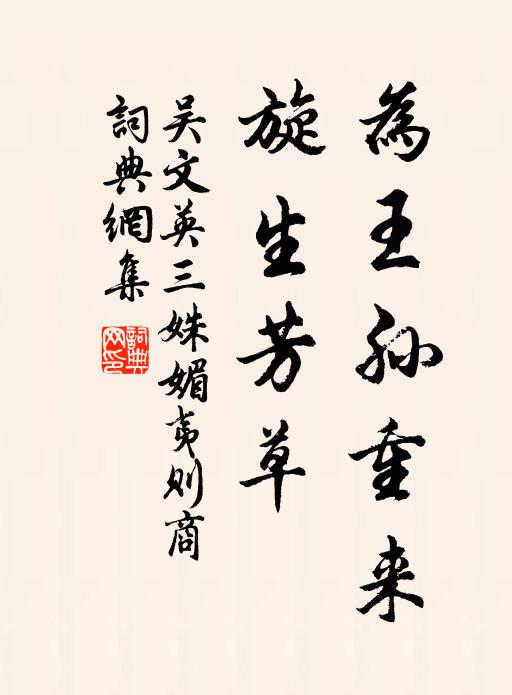 為王孙重来
旋生芳草
吴文英三姝媚夷则商
詞典網集
詞典網印